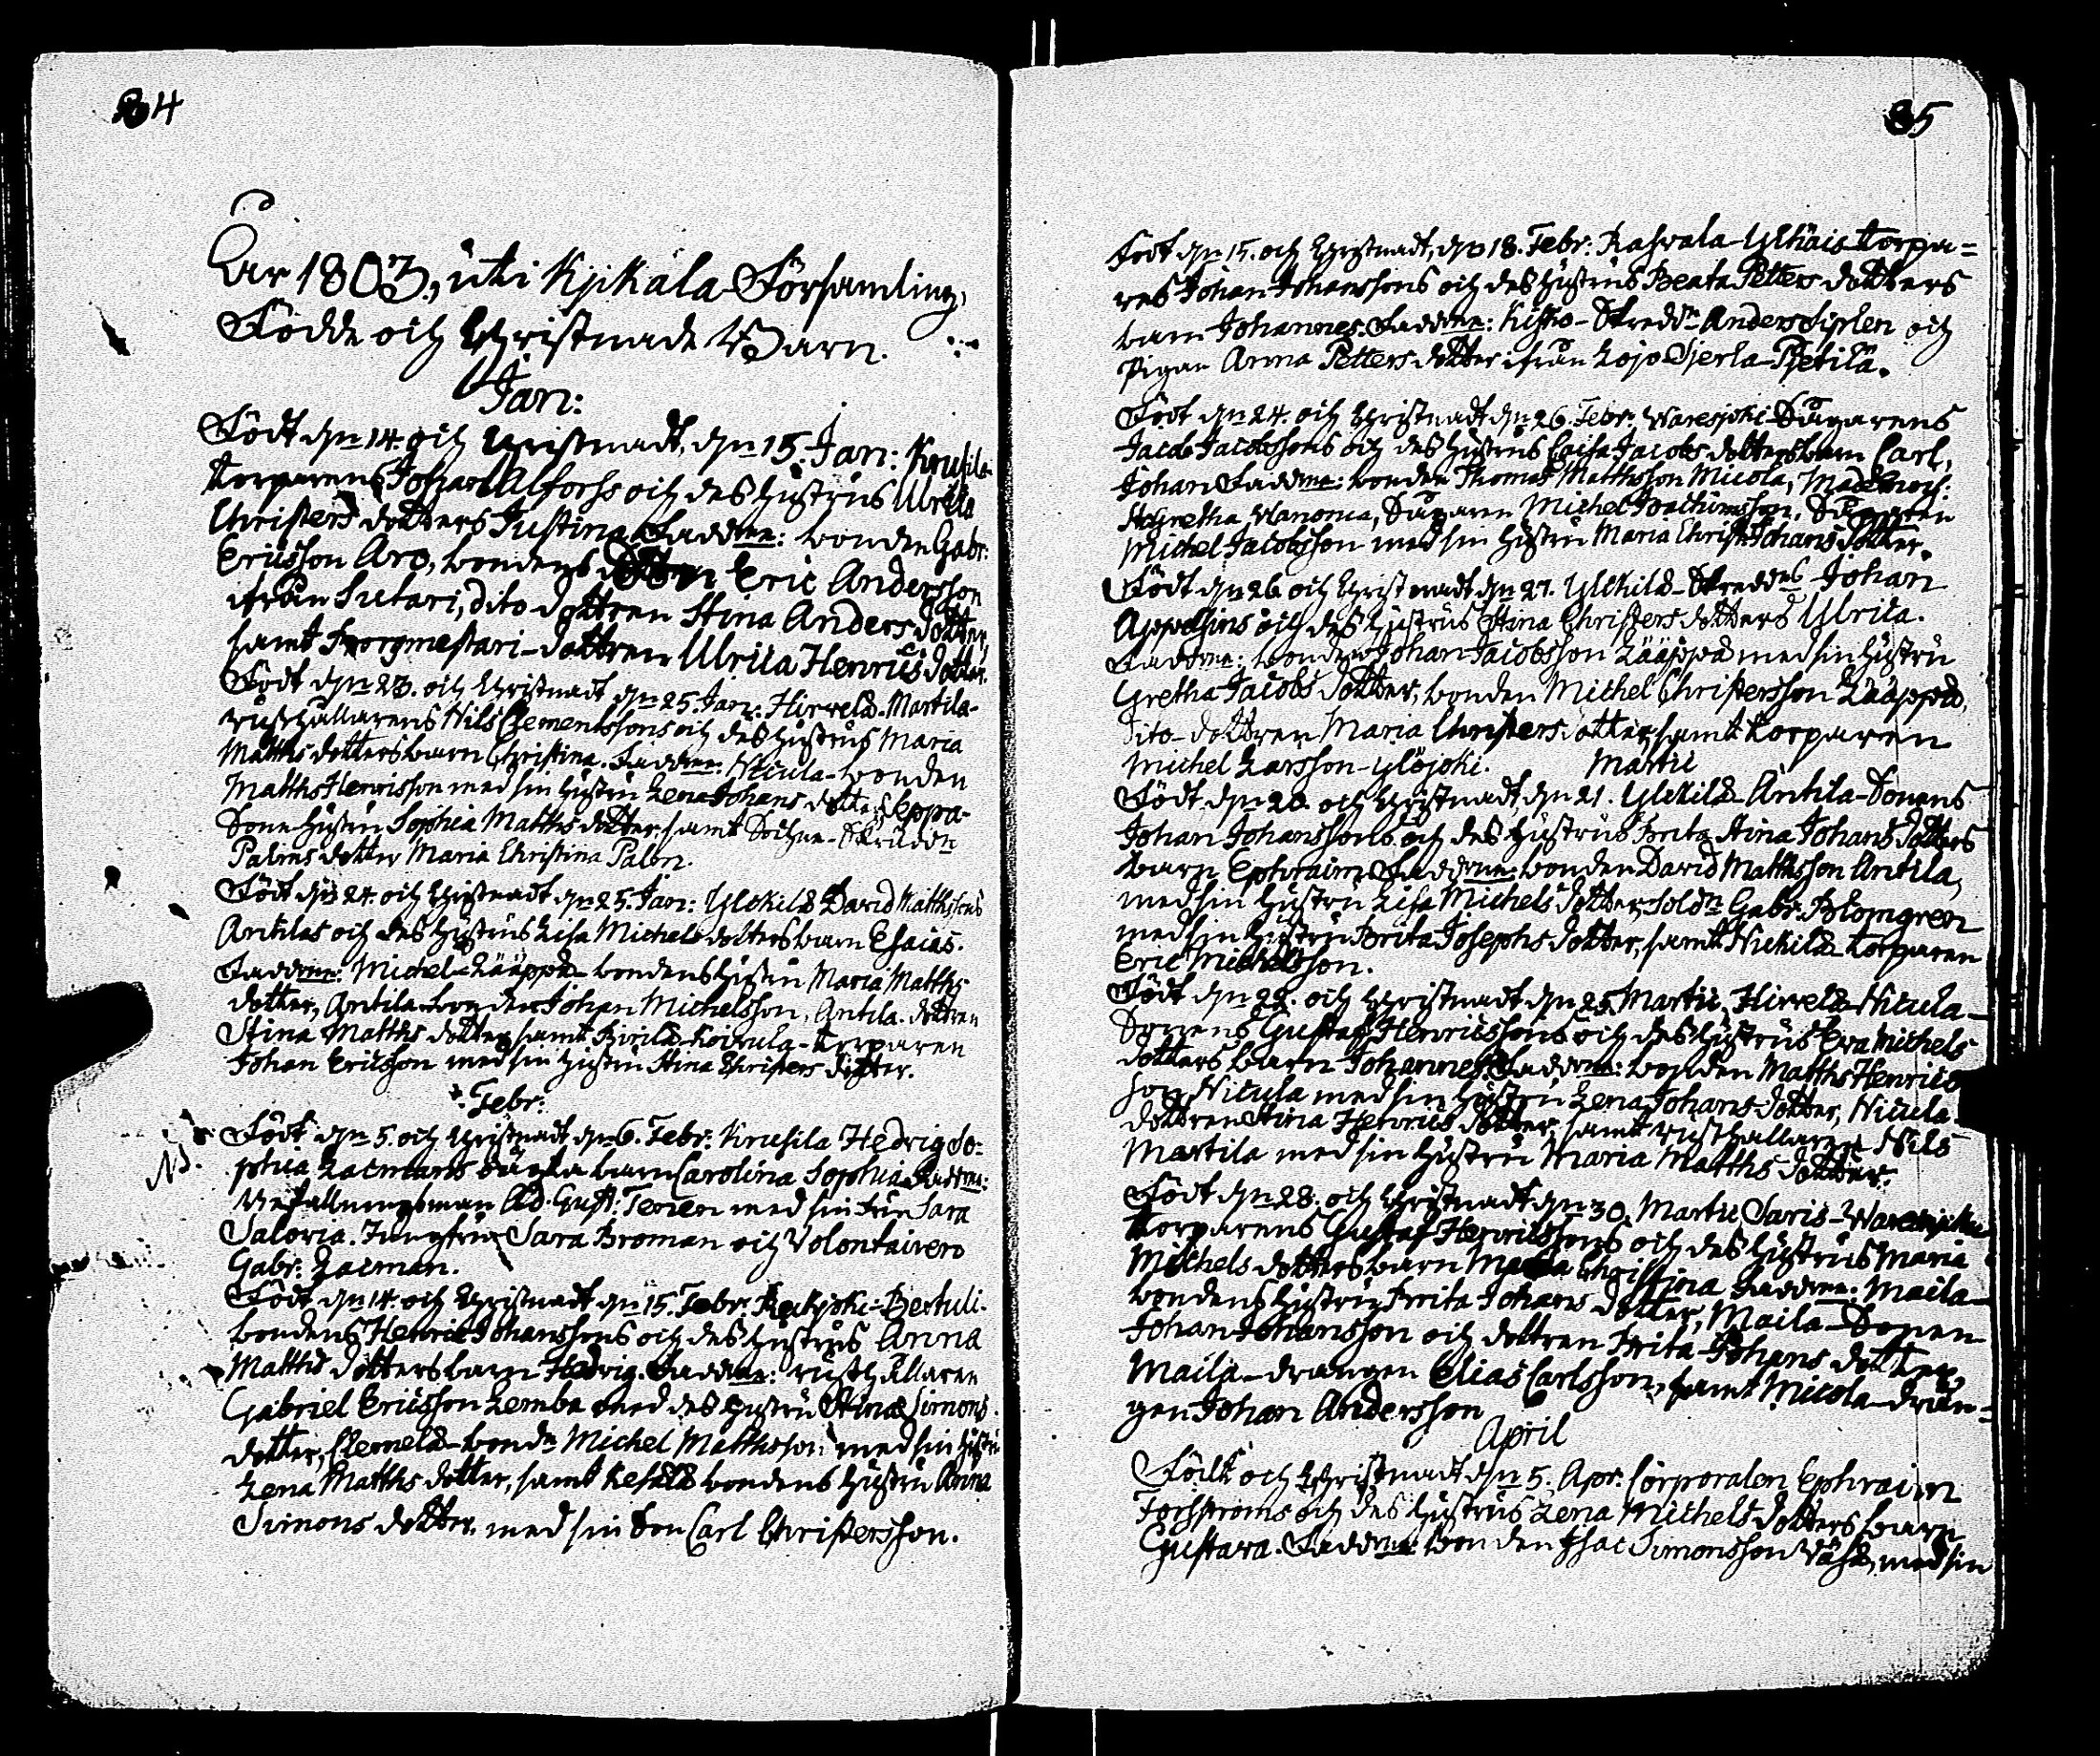 84
Åhr 1803, uti Kjikala Församling,
Födde och Christnade Barn.
Jan:
Född d:n 14. och Christnadt, d:n 15. Jan: Krusila
torparens Johan Alforss och des hustrus Ulrica
Christers dotters Justina. Faddrne: bonden Gabr:
Ericsson Aro, bondens Eric Andersson
ifrån Suтari, dito dottren Stina Anders dotter,
samt Borgmestari-dottren Ulrica Henrics dotter.
Född d:n 23. och Christnadt d:n 25. Jan: Hirvelä-Martila-
rusthållarens Nils Clementssons och des hustrus Maria
Matths dotters barn Christina. Faddrne: Nicula-bonden
Matths Henricsson med sin hustru Lena Johans dotter, Leppä-
Sone hustru Sophia Matths dotter, samt Sockne-Skräddn
Palms dotter Maria Christina Palm.
Född d:n 24. och Christnadt d:n 25. Jan: Ylikilä David Matthssons
Antilas och des hustrus Lisa Michels dotters barn Esaias.
Faddrne: Michel-Lääppä-bondens hustru Maria Matths
dotter, Antila-bonden Johan Michelsson, Antila-dottren
Stina Matths dotter, samt Koivula-torparen
Johan Ericsson med sin hustru Stina Christers dotter.
Febr:
Född d:n 5. och Christnadt d:n 6. Febr: Krusila Hedvig So-
phia Lacmans oäkta barn Carolina Sophia. Faddrne:
Befallningsman Ad. Gust. Teren med sin fru Sara
Saloria. Jungfru Sara Broman och Volontairen
Gabr: Lacman.
Född d:n 14. och Christnadt d:n 15. Febr. Rekijoki-Bertuli-
bondens Henric Johanssons och des hustrus Anna
Matths dotters barn Hedvig. Faddrne: rusthållaren
Gabriel Ericsson Lemba med des hustru Stina Simons
dotter, Clemelä-bondn Michel Matthsson med sin hustru
Lena Matths dotter, samt Kesälä bondens hustru Anna
Simons dotter, med sin son Carl Christersson.
85
Född d:n 15. och Christnadt, d:n 18. Febr: Rasvala-Ylhäis torpa=
res Johan Johanssons och des hustrus Beata Petters dotters
barn Johannes. Faddrne: Kisko-Skreddn Anders Siplen och
Pigan Anna Petters dotter ifrån Lojo Sjerla-Pjetilä.
Född d:n 24. och Christnadt d:n 26. Febr: Waresjoki Sågarens
Jacob Jacobssons och des hustrus Caisa Jacobs dotters barn Carl,
Johan. Faddrne: bonden Thomas Matthsson Micola, Madlmois:
Gretha Wanoma, Sågaren Michel Joachimsson, Sågaren
Michel Jacobsson med sin hustru Maria Christ: Johans dotter.
Född d:n 26. och Christnadt d:n 27. Ylikilä-Skreddns Johan
Appelgins och des hustrus Stina Christers dotters Ulrica.
Faddrne: bonden Johan Jacobsson Lääppä med sin hustru
Gretha Jacobs dotter, bonden Michel Christersson Lääppä,
dito-dottren Maria Christers dotter, samt torparen
Michel Larsson-Ylöjoki.
Martii
Född d:n 20. och Christnadt d:n 21. Ylikilä-Antila-Sonens
Johan Johanssons och des hustrus Brita Stina Johans dotters
barn Ephraim. Faddrne: bonden David Matthsson Antila,
med sin hustru Lisa Michels dotter, Soldn Gabr: Blomgren
med sin hustru Brita Josephs dotter, samt Nickilä-torparen
Eric Michelsson.
Född d:n 22. och Christnadt d:n 25. Martii, Hirvelä-Nicula-
Sonens Gustaf Henricssons och des hustrus Eva Michels
dotters barn Johannes. Faddrne: bonden Matths Henrics
son Nicula med sin hustru Lena Johans dotter, Nicula-
dottren Stina Henrics dotter, samt rusthållaren Nils
Martila med sin hustru Maria Matths dotter.
Född d:n 28. och Christnadt d:n 30. Martii, Saris-Waresjoki
torparens Gustaf Henricssons och des hustrus Maria
Michels dotters barn Maria Christina. Faddrne: Maila-
bondens hustru Brita Johans dotter, Maila-Sonen
Johan Johansson och dottren Brita Johans dotter,
Maila-drängen Elias Carlsson, samt Micola-drän=
gen Johan Andersson
April
Född och Christnadt d:n 5. Apr: Corporalen Ephraim
Forsströms och des hustrus Lena Michels dotters barn
Gustava. Faddrne: bonden Isac Simonsson Väsä, med sin